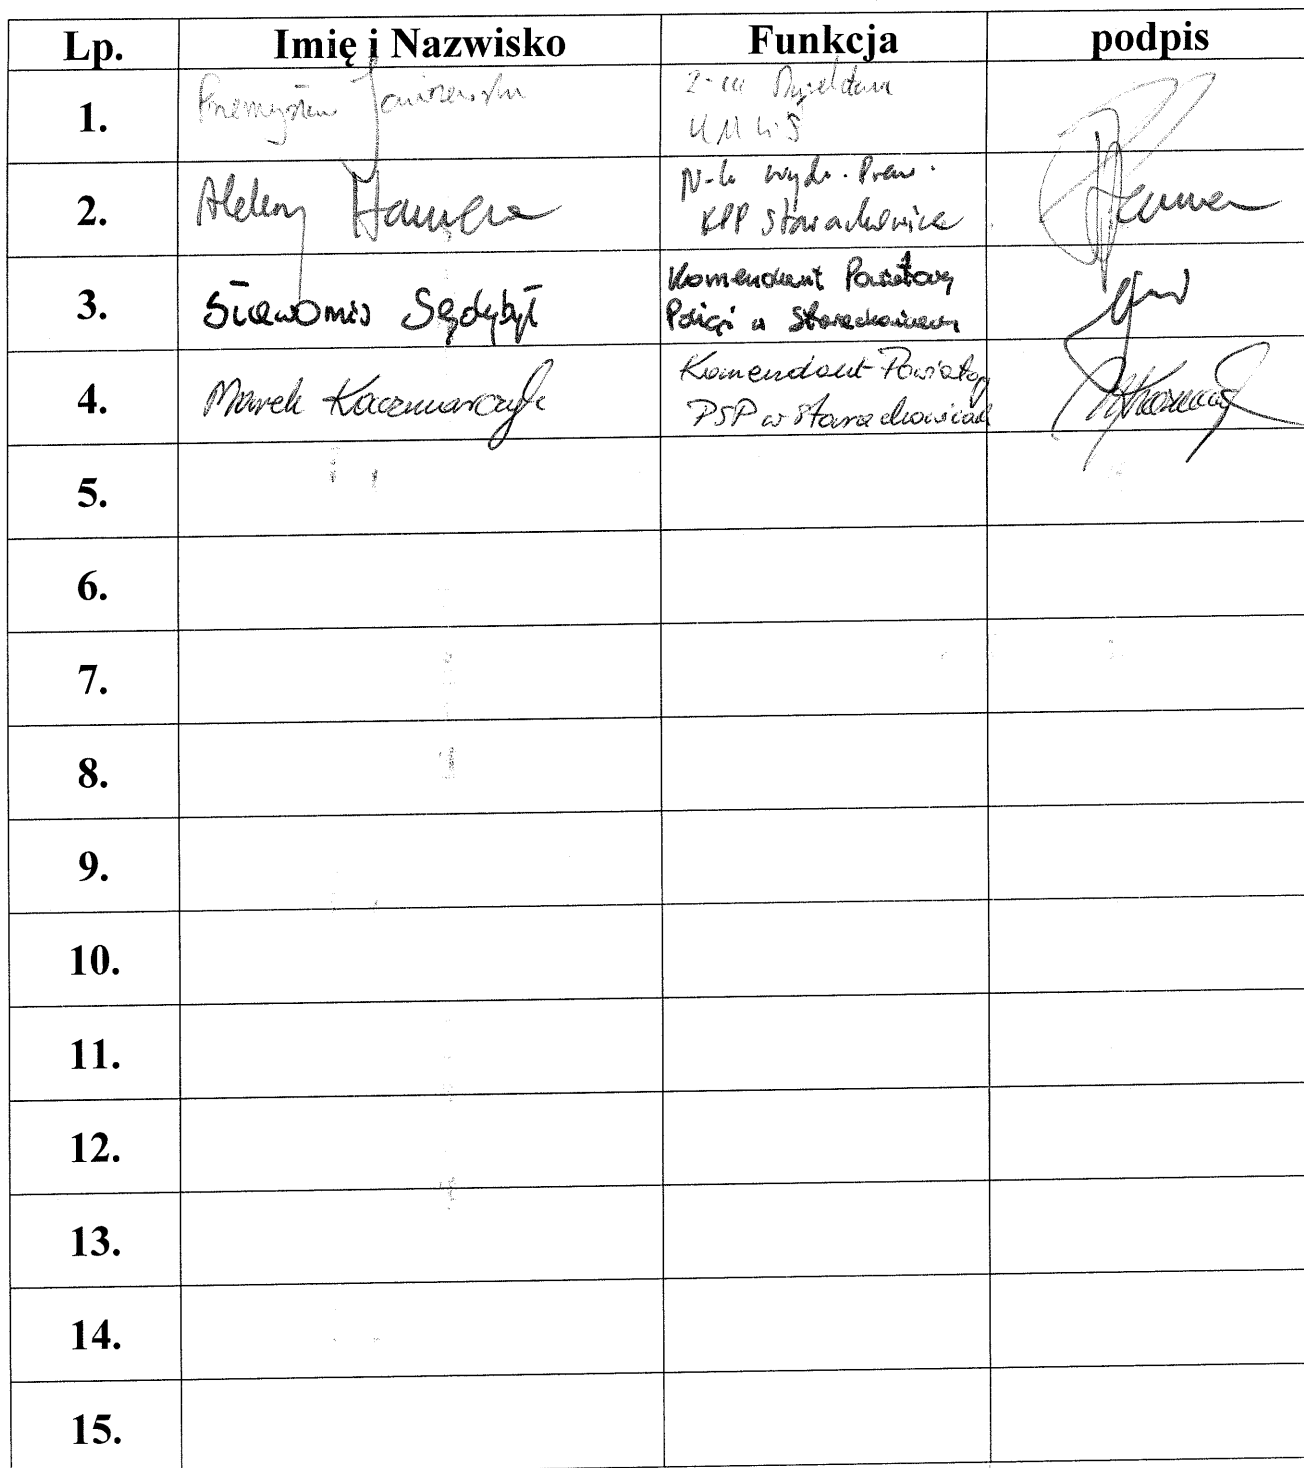 Lp. Imię i Nazwisko Funkcja podpis
1. Przemysław
2. Hamera N-k Wydz. Prew.
KPP Starachowice
3. Sławomir Sędybył Komendant Powiatowy
Policji w Starachowicach
4. Marek Kaczmarczyk Komendant Powiatowy
PSP w Starachowicach
5.
6.
7.
8.
9.
10.
11.
12.
13.
14.
15.